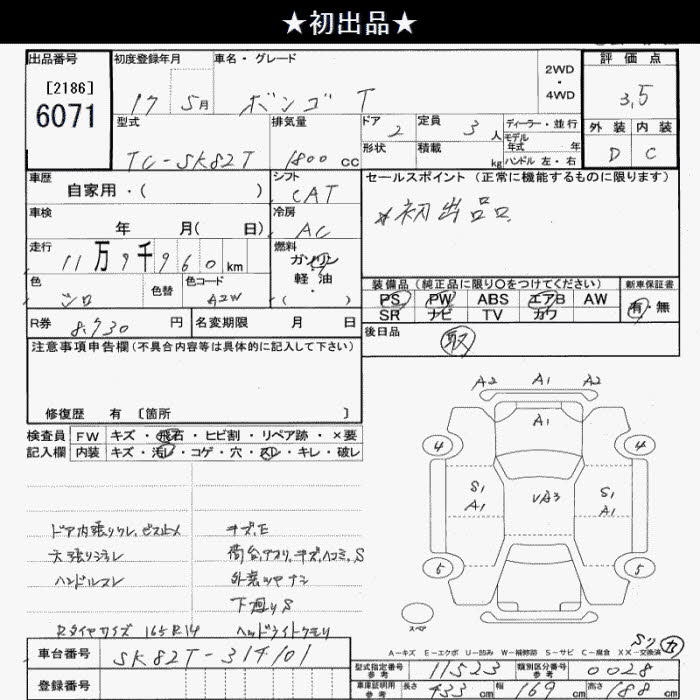 ★初出品★
出品番号 初度登録年月 車名・グレード 2WD・4WD 評価点
[2186]
6071
17 5月 ボンゴ T 3.5
型式 排気量 ドア 2 定員 3人 ディーラー・並行 外装 内装
TC-SK82T 1800 cc 形状 積載 kg モデル年式 年 ハンドル 左・右 D C
車歴 自家用・( ) シフト CAT セールスポイント (正常に機能するものに限ります)
車検 年 月( 日) 冷房 AC *初出品
走行 11万9千960km 燃料 ガソリン 軽・油 ( )
色 シロ 色替 色コード A2W
装備品 (純正品に限り〇をつけてください) 新車保証書
PS PW ABS エアB AW 有・無
SR ナビ TV カワ
R券 8,730 円 名変期限 月 日 後日品 取
注意事項申告欄(不具合内容等は具体的に記入して下さい)
修復歴 有 [箇所 ]
検査員 FW キズ・飛石・ヒビ割・リペア跡・×要
記入欄 内装 キズ・汚レ・コゲ・穴・スレ・キレ・破レ
A2 A1 A2
A1
4 4
S1 A1 UA3 S1 A1
5 5
スペア
ドア内張りワレ、ビス止メ キズ、E
天張りシミレ 荷台アオリ、キズ、ヘコミ、S
ハンドルスレ 外装ツヤナシ
下廻りS
Rタイヤサイズ 165R14 ヘッドライトクモリ
Sリ カ
A-キズ E-エクボ U-凹み W-補修跡 S-サビ C-腐食 XX-交換済
車台番号 SK82T-314101 型式指定番号 参考 11523 類別区分番号 参考 0028
登録番号 車庫証明用 参考 長さ 433 cm 幅 169 cm 高さ 188 cm